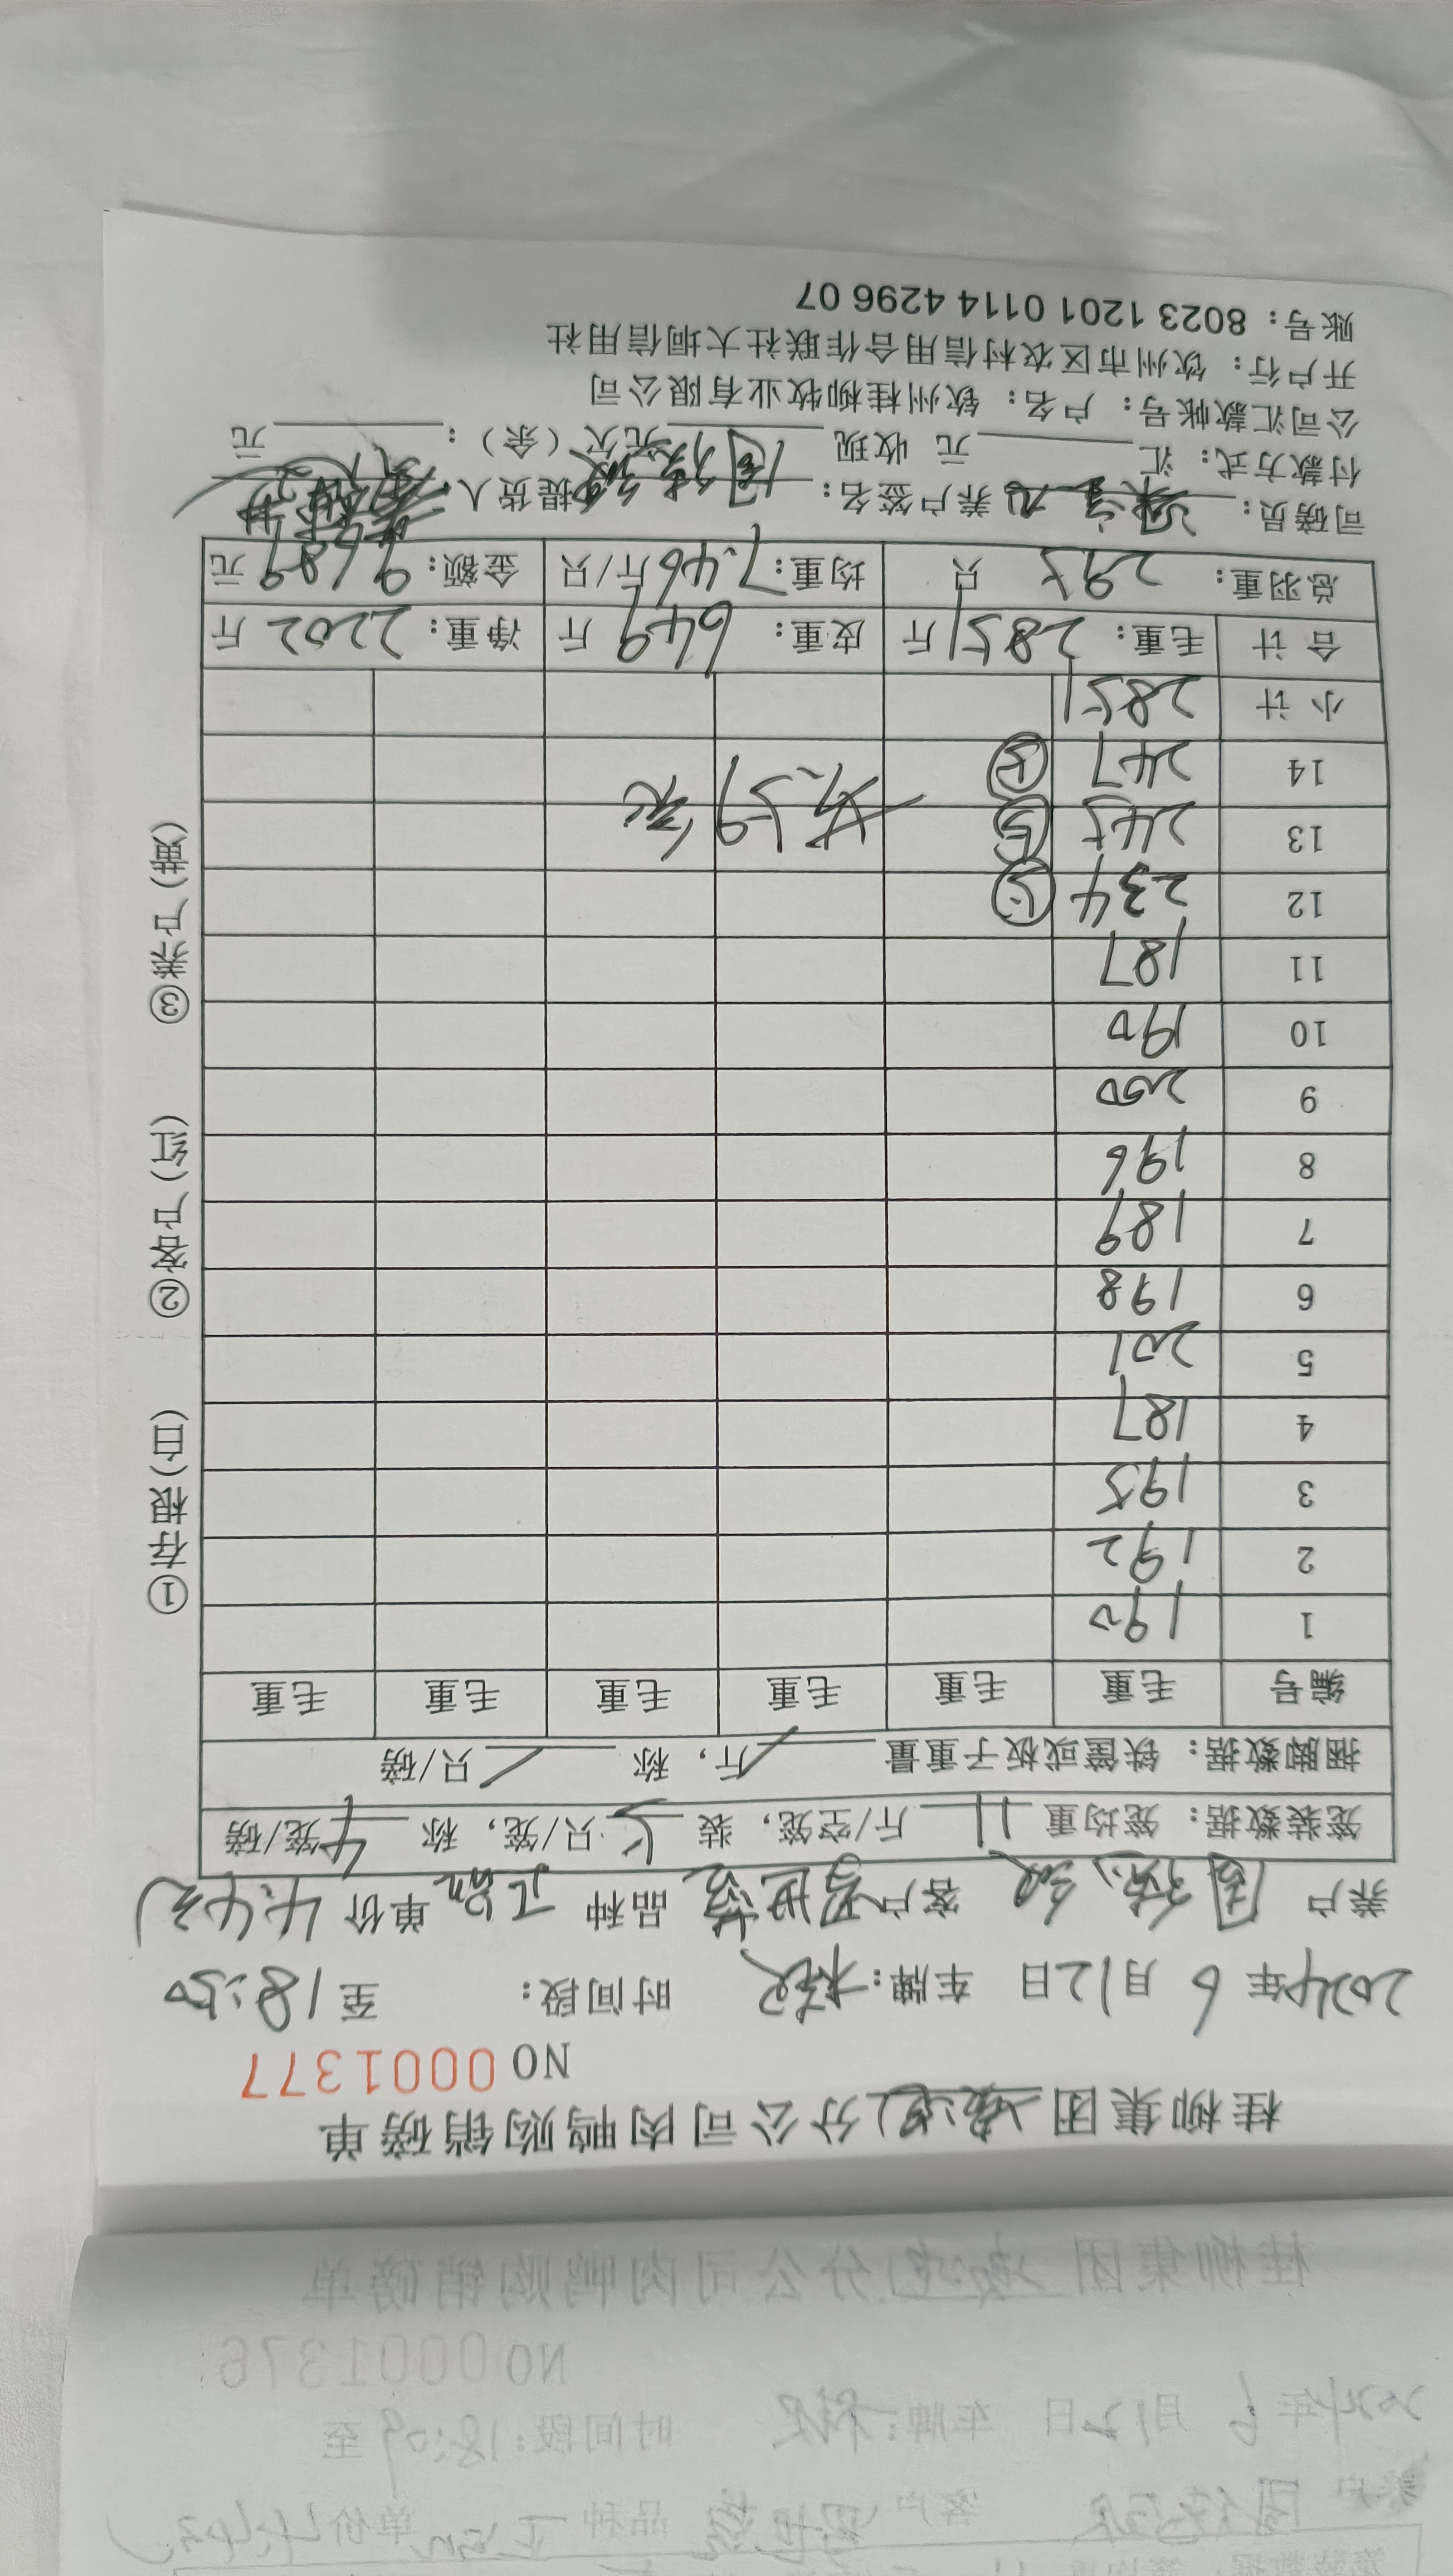 桂柳集团分公司肉鸭购销磅单
NO 0001377
2024年6月12日 车牌: 时间段: 至18:50
养户 周 客户 易世 品种 正品 单价 4.4元
笼装数据: 笼均重 11 斤/空笼, 装 5 只/笼, 称 4 笼/磅
捆脚数据: 铁筐或板子重量 / 斤, 称 / 只/磅
编号 毛重 毛重 毛重 毛重 毛重 毛重
1 190
2 192
3 195
4 187
5 201
6 198
7 189
8 196
9 200
10 190
11 187
12 234 ⑤
13 245 ⑤
14 247 ⑤
小计 2851
合计 毛重: 2851 斤 皮重: 649 斤 净重: 2202 斤
总羽重: 295 只 均重: 7.46 斤/只 金额: 9689 元
司磅员: 养户签名: 周 提货人:
付款方式: 汇 元 收现 元欠(余): 元
公司汇款帐号: 户名: 钦州桂柳牧业有限公司
开户行: 钦州市区农村信用合作联社大垌信用社
账号: 8023 1201 0114 4296 07
①存根(白) ②客户(红) ③养户(黄)
桂柳集团分公司肉鸭购销磅单
NO 0001376
2024年6月12日 车牌: 时间段: 18:09 至
养户 周 客户 易世 品种 正品 单价